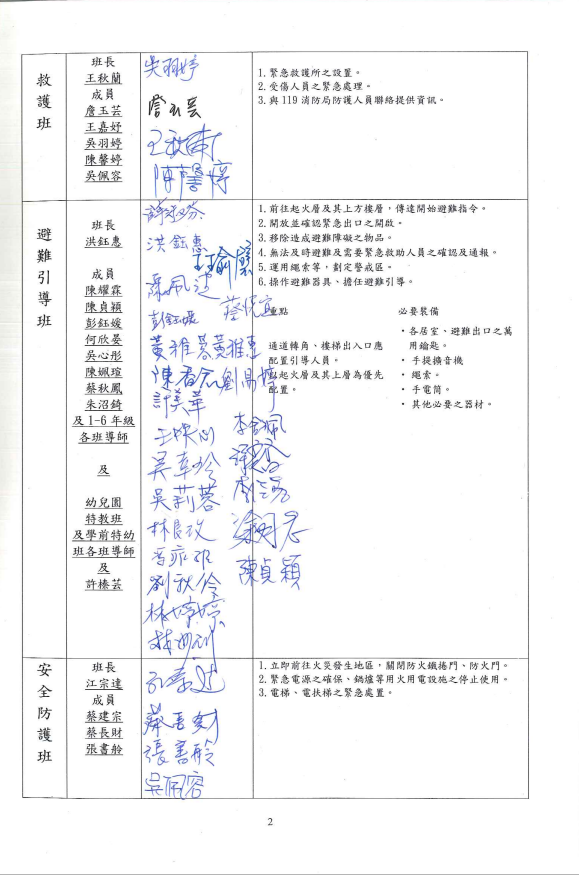 救護班
班長
王秋蘭
成員
詹玉芸
王嘉妤
吳羽婷
陳馨婷
吳佩容
吳羽婷
詹玉芸
王秋蘭
陳馨婷
1.緊急救護所之設置。
2.受傷人員之緊急處理。
3.與119消防局防護人員聯絡提供資訊。
避難引導班
班長
洪鈺惠
成員
陳耀霖
陳貞穎
彭鈺媛
何欣晏
吳心彤
陳姵瑄
蔡秋鳳
朱沼錡
及1-6年級
各班導師
及
幼兒園
特教班
及學前特幼
班各班導師
及
許榛芸
洪鈺惠
彭鈺媛
黃雅惠
吳莉蓉
劉秋伶
陳貞穎
1.前往起火層及其上方樓層，傳達開始避難指令。
2.開放並確認緊急出口之開啟。
3.移除造成避難障礙之物品。
4.無法及時避難及需要緊急救助人員之確認及通報。
5.運用繩索等，劃定警戒區。
6.操作避難器具、擔任避難引導。
重點
通道轉角、樓梯出入口應
配置引導人員。
以起火層及其上層為優先
配置。
必要裝備
・各居室、避難出口之萬
用鑰匙。
・手提擴音機
・繩索。
・手電筒。
・其他必要之器材。
安全防護班
班長
江宗達
成員
蔡建宗
蔡長財
張書舲
張書舲
吳佩容
1.立即前往火災發生地區，關閉防火鐵捲門、防火門。
2.緊急電源之確保、鍋爐等用火用電設施之停止使用。
3.電梯、電扶梯之緊急處置。
2